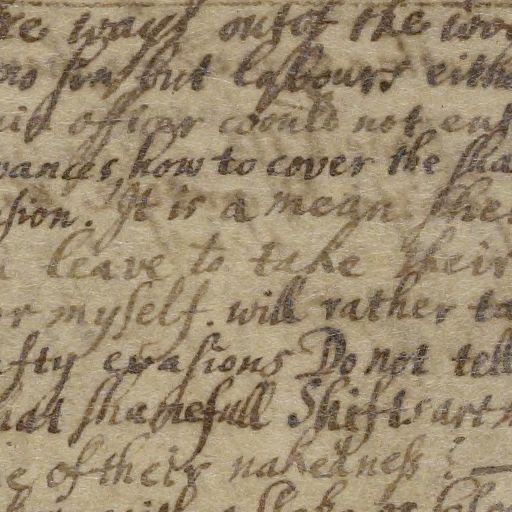 ways out of the
but labours eith
officer would not ent
vances, how to cover the sha
sion. It is a mean she
leave to take their
or myself. will rather ta
fty evasions Do not tell
hat shamefull Shifts art
of their nakedness